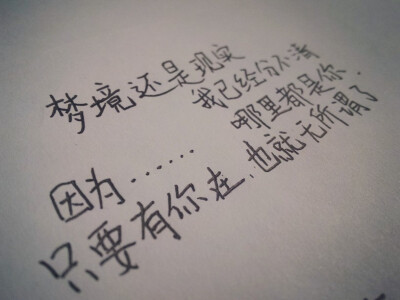 梦境还是现实
我已经分不清
因为……
哪里都是你.
只要有你在、也就无所谓了